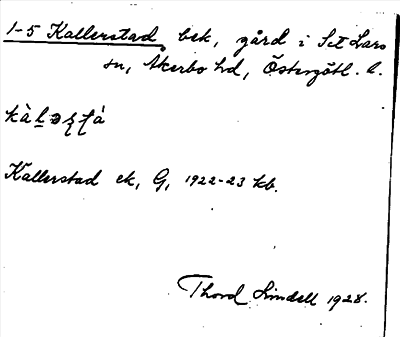 1-5 Kallerstad bek, gård i S:t Lars
sn, Åkerbo hd, Östergötl. l.
Kallerstad ek, G, 1922-23 kb.
Thord Lindell 1928.